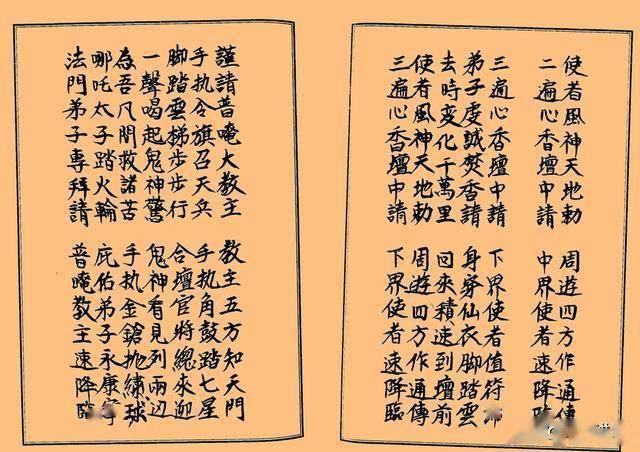 使者風神天地勅 周遊四方作通
二遍心香壇中請 中界使者速降臨
三遍心香壇中請 下界使者值符
弟子虔誠焚香請 身穿仙衣脚踏雲
去時变化千萬里 回來積速到壇前
使者風神天地勅 周遊四方作通傳
三遍心香壇中請 下界使者速降臨
謹請普唵大教主 教主五方知天門
手执令旗召天兵 手执角鼓踏七星
脚踏雲梯步步行 合壇官將總來迎
一聲喝起鬼神驚 鬼神看見列兩边
為吾凡間救諸苦 手执金鎗抛繡球
哪吒太子踏火輪 庇佑弟子永康寧
法門弟子專拜請 普唵教主速降臨